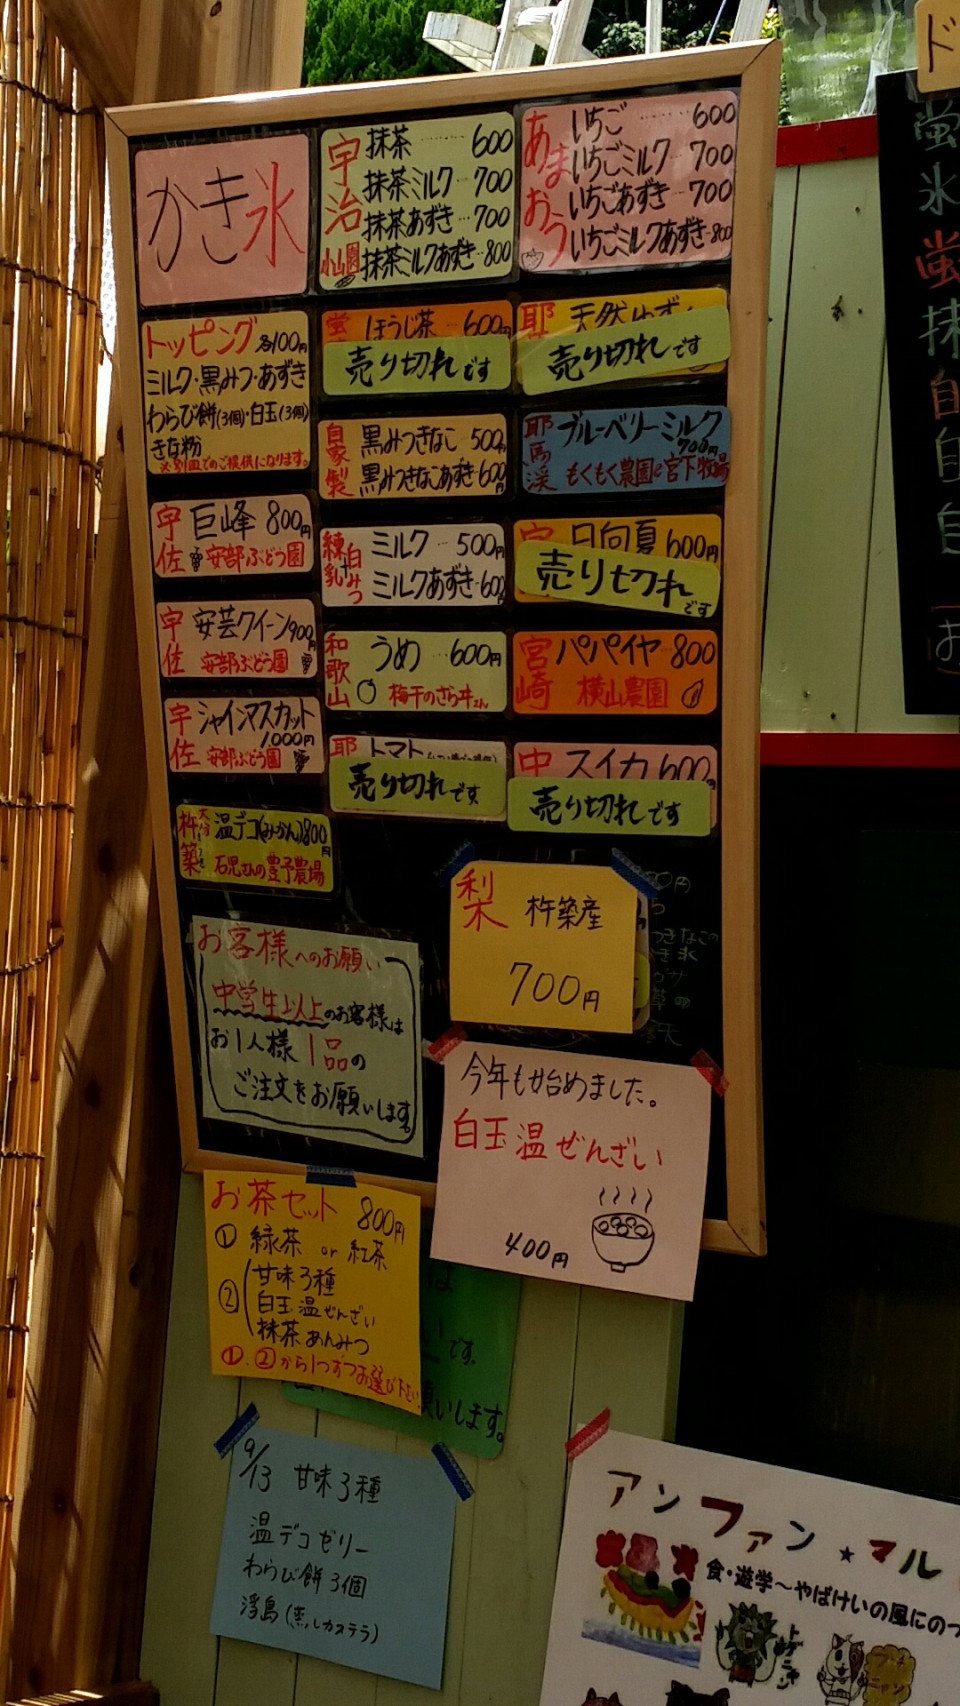 かき氷
宇治
小山園
抹茶 ……… 600
抹茶ミルク … 700
抹茶あずき … 700
抹茶ミルクあずき … 800
あまおう
いちご ……… 600
いちごミルク … 700
いちごあずき … 700
いちごミルクあずき … 800
トッピング 各100円
ミルク・黒みつ・あずき
わらび餅(3個)・白玉(3個)
きな粉
※別皿でのご提供になります。
蛍 ほうじ茶 … 600円
売り切れです
耶 天然ゆず
売り切れです
自家製
黒みつきなこ 500円
黒みつきなこあずき 600円
耶馬渓
ブルーベリーミルク
700円
もくもく農園と宮下牧場
宇佐
巨峰 800円
安部ぶどう園
練乳+白みつ
ミルク … 500円
ミルクあずき … 600
日向夏 600円
売り切れ
です
宇佐
安芸クイーン 900円
安部ぶどう園
和歌山
うめ … 600円
梅干のざら井さん
宮崎
パパイヤ 800
横山農園
宇佐
シャインマスカット
1,000円
安部ぶどう園
耶 トマト
売り切れです
中 スイカ 600円
売り切れです
杵築
温デコ(みかん)800円
石児さんの豊予農場
梨 杵築産
700円
お客様へのお願い
中学生以上のお客様は
お1人様 1品の
ご注文をお願いします。
今年も始めました。
白玉温ぜんざい
400円
お茶セット 800円
① 緑茶 or 紅茶
② 甘味3種
白玉温ぜんざい
抹茶あんみつ
①、②から1つずつお選び下さい
です。
いします。
9/13 甘味3種
温デコゼリー
わらび餅3個
浮島(蒸しカステラ)
アンファン★マル
食・遊学~やばけいの風にのっ
ド
蛍
氷
蛍
抹
自
自
自
お